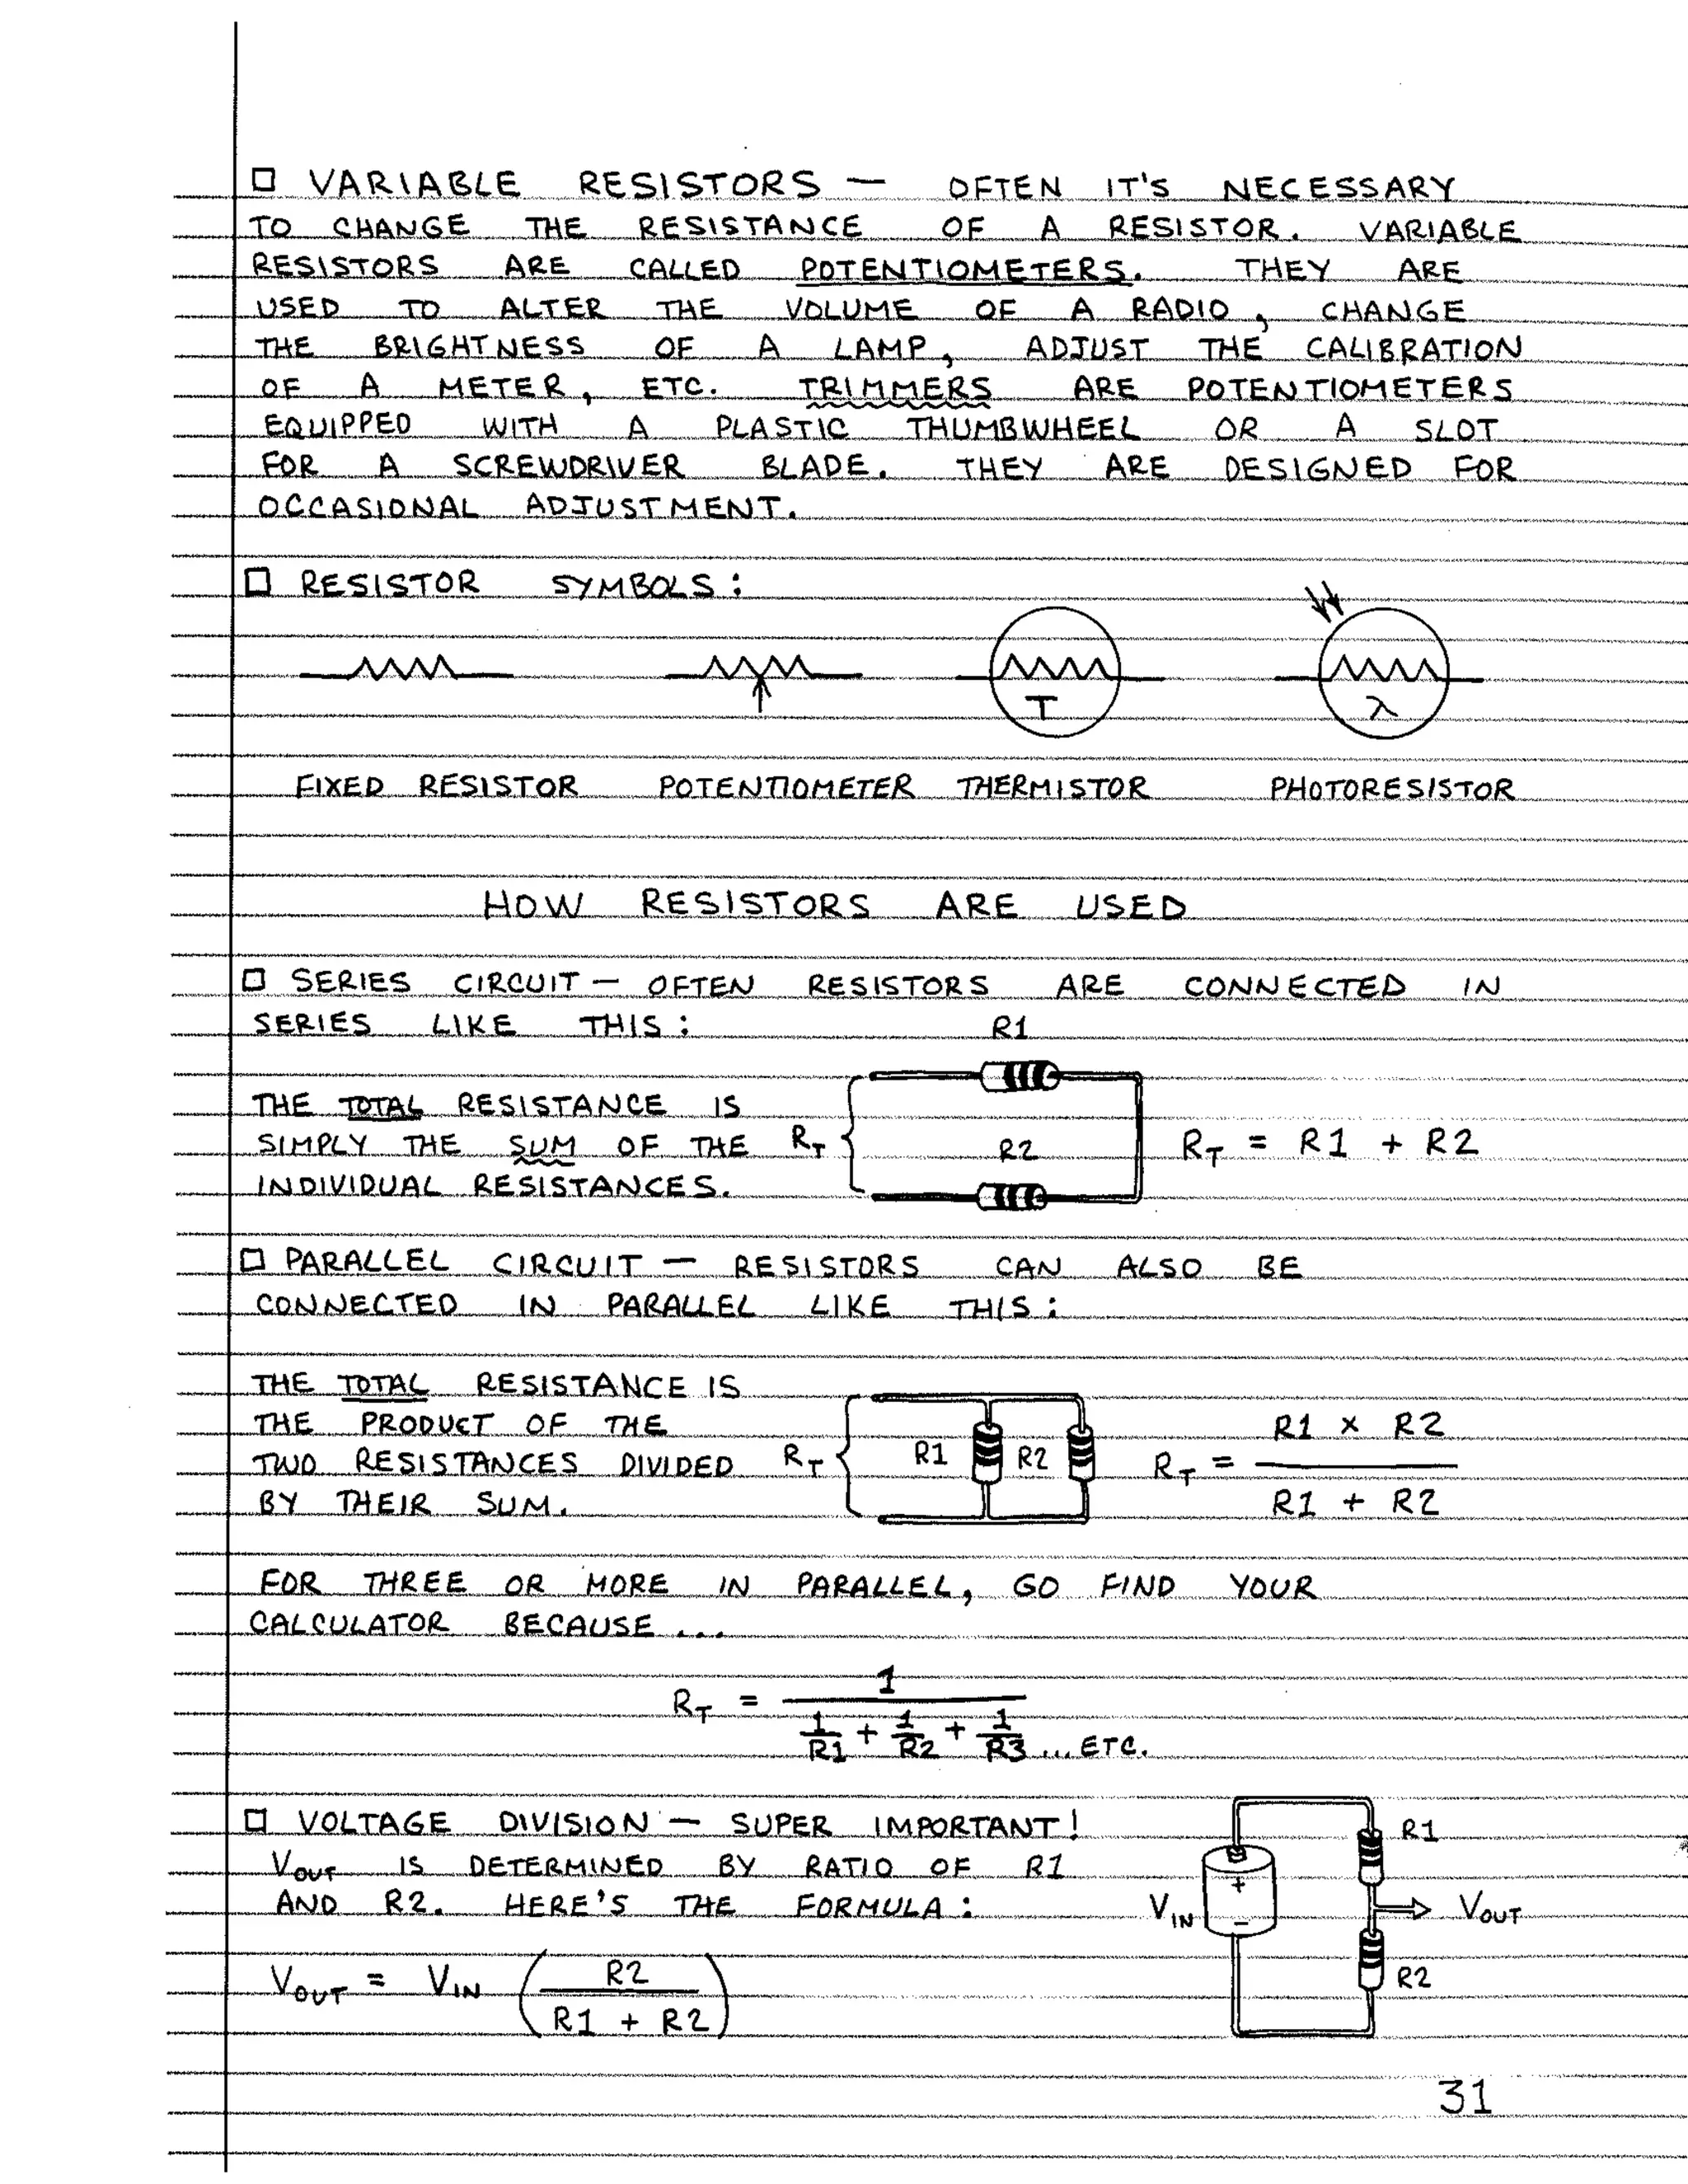 □ VARIABLE RESISTORS — OFTEN IT'S NECESSARY
TO CHANGE THE RESISTANCE OF A RESISTOR. VARIABLE
RESISTORS ARE CALLED POTENTIOMETERS. THEY ARE
USED TO ALTER THE VOLUME OF A RADIO, CHANGE
THE BRIGHTNESS OF A LAMP, ADJUST THE CALIBRATION
OF A METER, ETC. TRIMMERS ARE POTENTIOMETERS
EQUIPPED WITH A PLASTIC THUMBWHEEL OR A SLOT
FOR A SCREWDRIVER BLADE. THEY ARE DESIGNED FOR
OCCASIONAL ADJUSTMENT.
□ RESISTOR SYMBOLS:
T λ
FIXED RESISTOR POTENTIOMETER THERMISTOR PHOTORESISTOR
HOW RESISTORS ARE USED
□ SERIES CIRCUIT — OFTEN RESISTORS ARE CONNECTED IN
SERIES LIKE THIS:
R1
THE TOTAL RESISTANCE IS
SIMPLY THE SUM OF THE
INDIVIDUAL RESISTANCES.
RT { R2 RT = R1 + R2
□ PARALLEL CIRCUIT — RESISTORS CAN ALSO BE
CONNECTED IN PARALLEL LIKE THIS:
THE TOTAL RESISTANCE IS
THE PRODUCT OF THE
TWO RESISTANCES DIVIDED
BY THEIR SUM.
RT { R1 R2
RT = R1 × R2
R1 + R2
FOR THREE OR MORE IN PARALLEL, GO FIND YOUR
CALCULATOR BECAUSE ...
RT = 1
1/R1 + 1/R2 + 1/R3 ... ETC.
□ VOLTAGE DIVISION — SUPER IMPORTANT!
VOUT IS DETERMINED BY RATIO OF R1
AND R2. HERE'S THE FORMULA:
VOUT = VIN (R2
R1 + R2)
R1
+
VIN
−
VOUT
R2
31